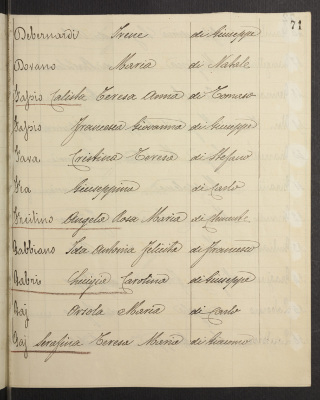 71
Debernardi Irene di Giuseppe
Dovano Maria di Natale
Fassio Calista Teresa Anna di Tomaso
Fassio Francesca Giovanna di Giuseppe
Fava Cristina Teresa di Stefano
Fea Giuseppina di Carlo
Angela Rosa Maria di
Gabbiano Ida Antonia Felicita di Francesco
Gabrio Luigia Carolina di Giuseppe
Gaj Orsola Maria di Carlo
Gaj Serafina Teresa Maria di Giacomo